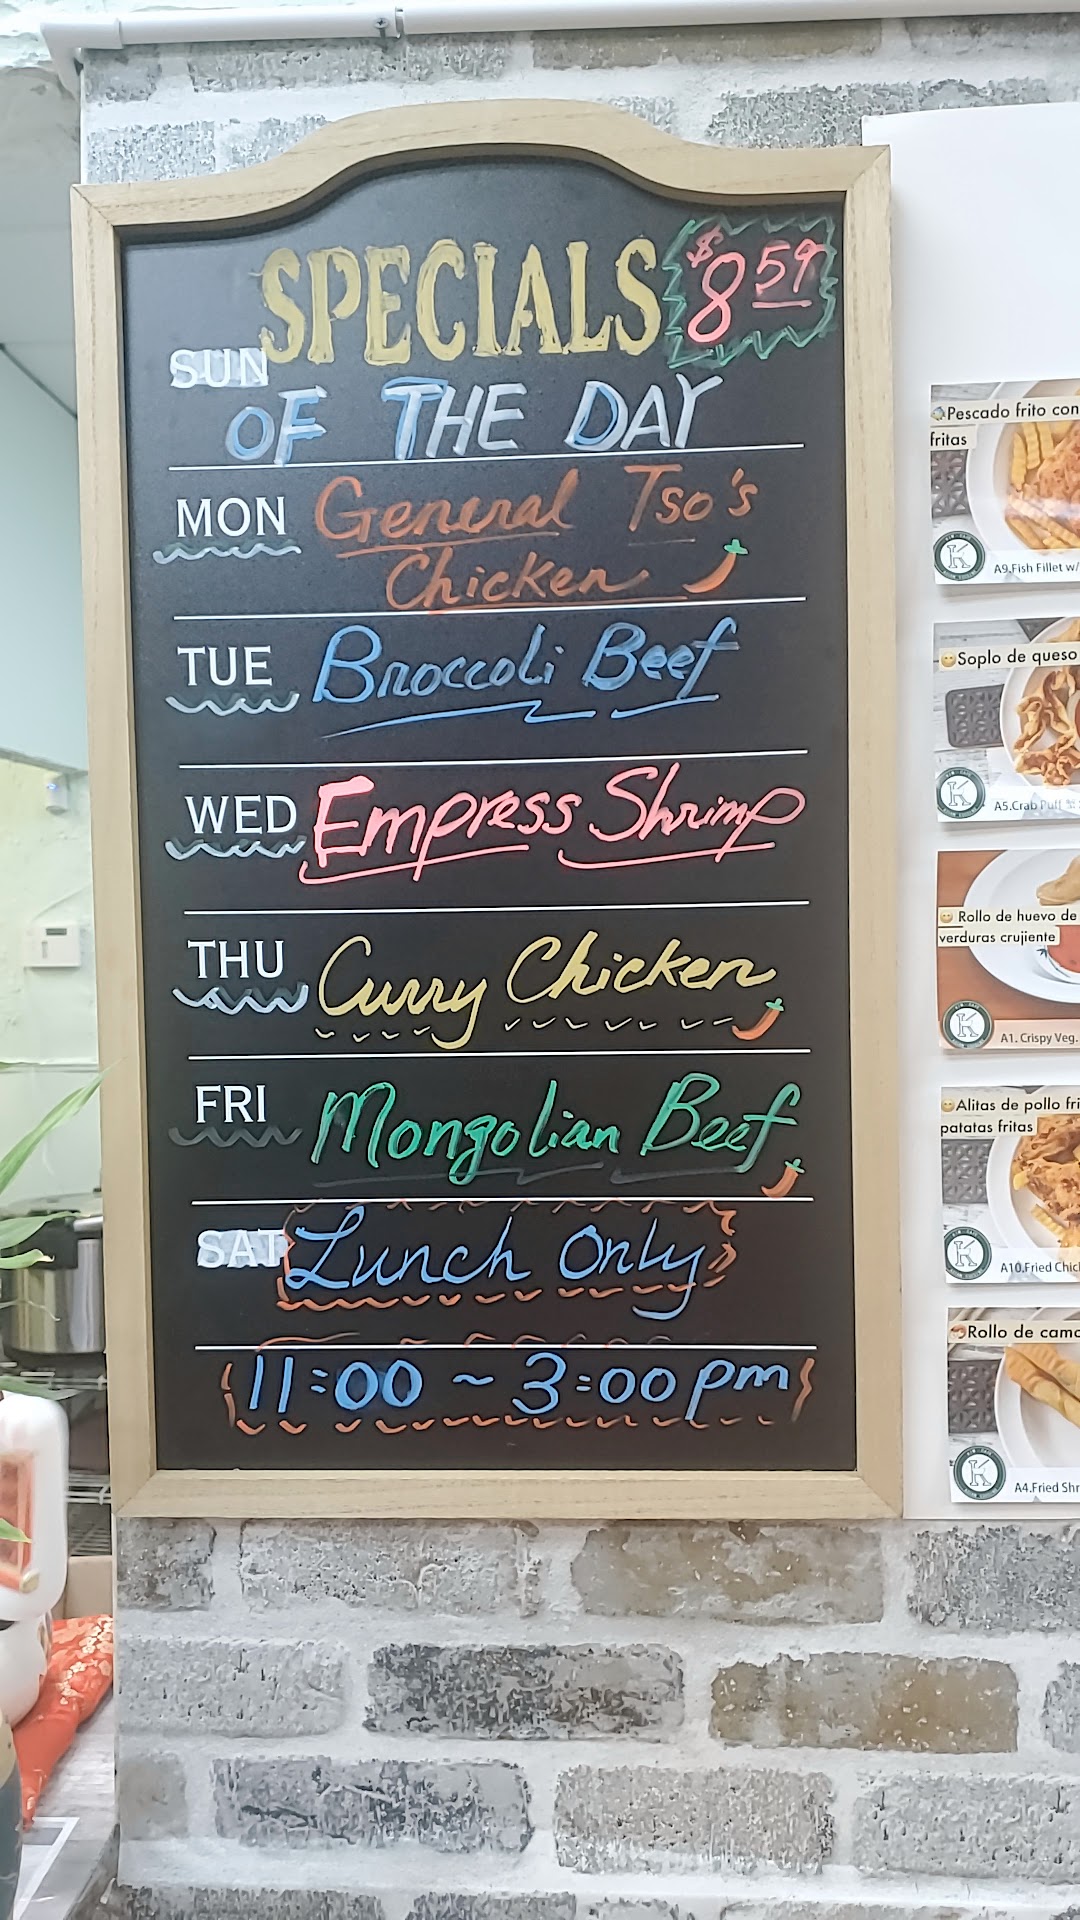 SPECIALS $8 59
SUN
OF THE DAY
MON General Tso's
Chicken
TUE Broccoli Beef
WED Empress Shrimp
THU Curry Chicken
FRI Mongolian Beef
SAT Lunch Only
11:00 ~ 3:00pm
Pescado frito con
fritas
K
A9.Fish Fillet w/
Soplo de queso
K
A5.Crab Puff
Rollo de huevo de
verduras crujiente
K
A1. Crispy Veg.
Alitas de pollo fri
patatas fritas
K
A10.Fried Chic
Rollo de cama
K
A4.Fried Shr